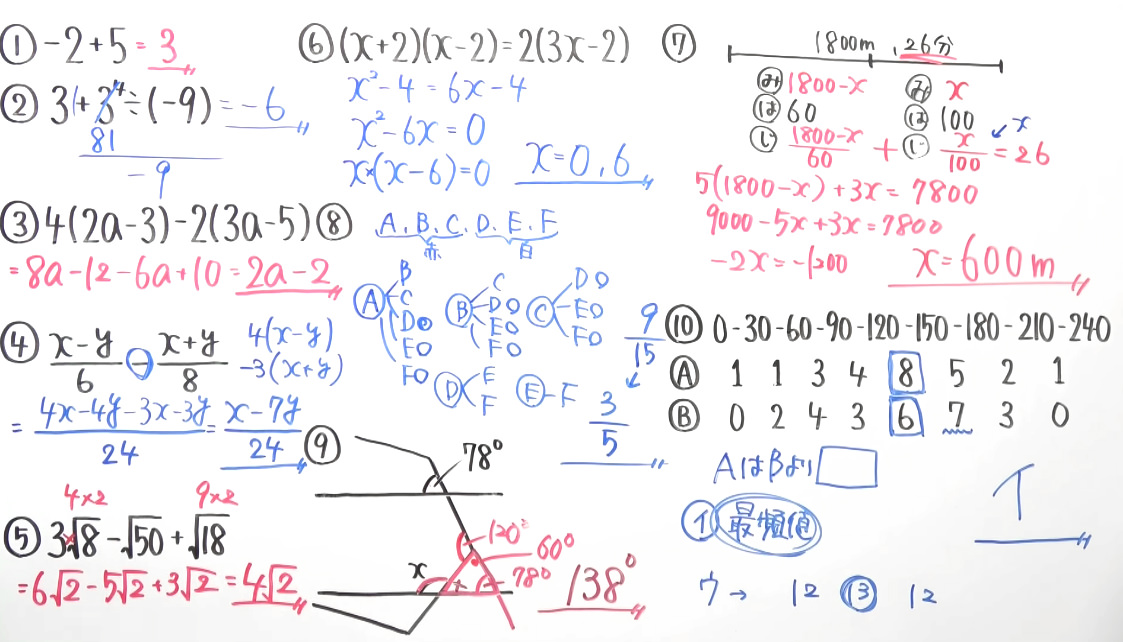 ① -2+5 = 3
② 3+3⁴÷(-9) = -6
81
-9
③ 4(2a-3)-2(3a-5)
= 8a-12-6a+10 = 2a-2
④ x-y/6 - x+y/8
4(x-y)
-3(x+y)
= 4x-4y-3x-3y/24 = x-7y/24
4×2 9×2
⑤ 3√8-√50+√18
= 6√2-5√2+3√2 = 4√2
⑥ (x+2)(x-2)=2(3x-2)
x²-4=6x-4
x²-6x=0
x(x-6)=0 x=0,6
⑦ 1800m, 26分
み 1800-x み x
は 60 は 100
じ 1800-x/60 + じ x/100 = 26
x
5(1800-x)+3x=7800
9000-5x+3x=7800
-2x=-1200 x=600m
⑧ A.B.C.D.E.F
赤 白
A B C DO EO FO
B C DO EO FO
C DO EO FO
D E F
E-F
9/15
3/5
⑨ 78°
120°
60°
x × 78°
138°
⑩ 0-30-60-90-120-150-180-210-240
A 1 1 3 4 8 5 2 1
B 0 2 4 3 6 7 3 0
AはBより
イ 最頻値
イ
ウ→ 12 13 12